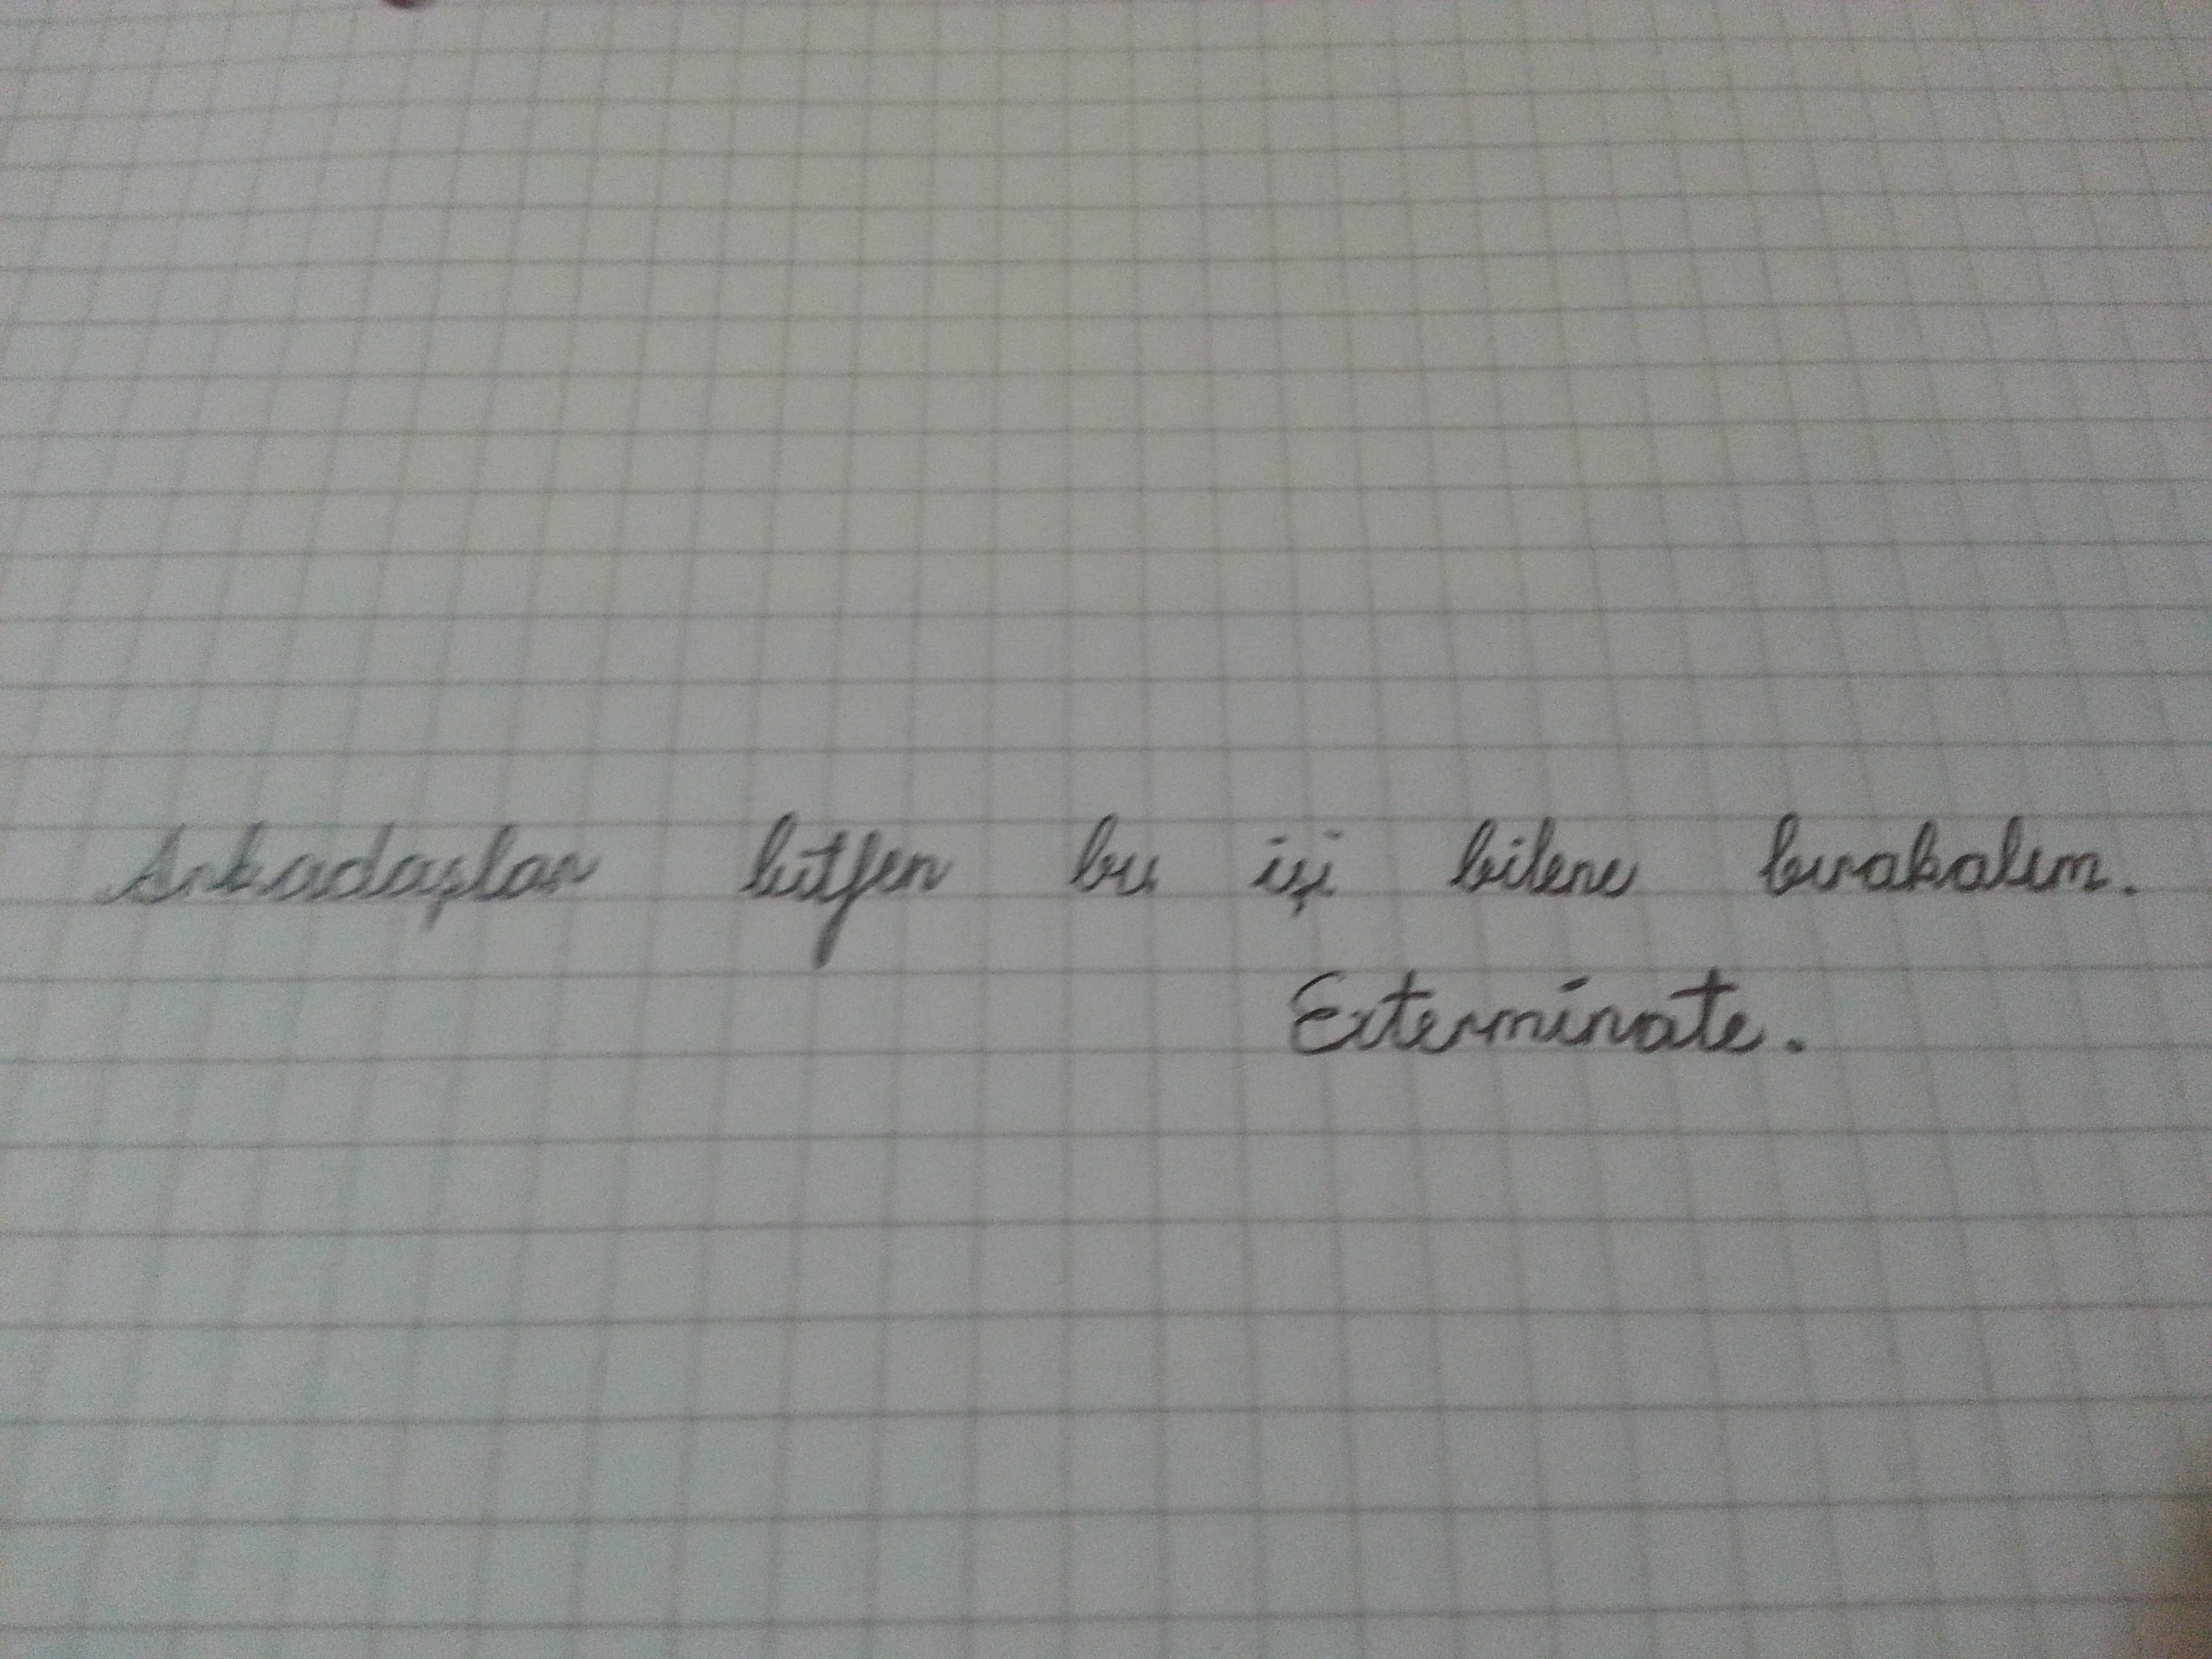 Arkadaşlar lütfen bu işi bilene bırakalım.
Exterminate.